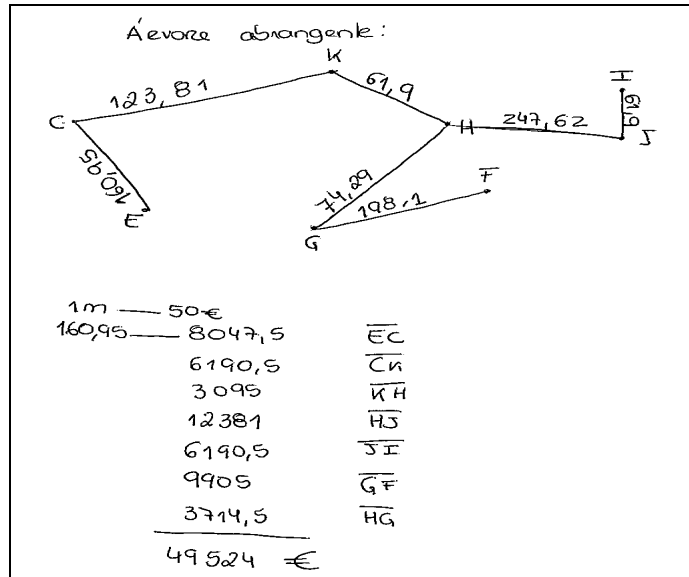 Áevore abrangente:
K
123,81
61,9
I
C
H
247,62
61,9
J
160,95
E
74,29
198,1
F
G
1m — 50€
160,95 — 8047,5 EC
6190,5 CK
3095 KH
12381 HJ
6190,5 JI
9905 GF
3714,5 HG
49524 €